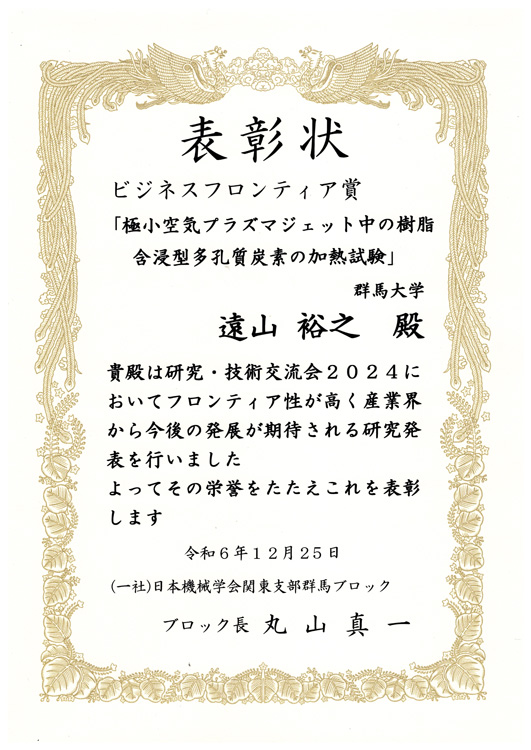 表彰状
ビジネスフロンティア賞
「極小空気プラズマジェット中の樹脂
含浸型多孔質炭素の加熱試験」
群馬大学
遠山 裕之 殿
貴殿は研究・技術交流会２０２４に
おいてフロンティア性が高く産業界
から今後の発展が期待される研究発
表を行いました
よってその栄誉をたたえこれを表彰
します
令和６年１２月２５日
(一社)日本機械学会関東支部群馬ブロック
ブロック長 丸山真一